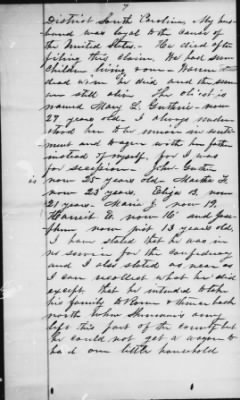 7
District South Carolina - My hus-
band was loyal to the cause of
the United States - He died after
filing this claim. We had seven
children living now - Warren F
dead when he died and the seven
are still alive The oldest is
named Mary L. Guthrie - now
27 years old. I always under-
stood her to be union in senti-
ment and to agree with her father
instead of myself, for I was
for secession - John
now 25 years old Martha F.
now 23 years, Eliza B. now
21 years - Maria J now 19.
Harriet E. now 16 and Jose-
phine now just 13 years old,
I have stated that he was in
no service for the confederacy
and I also stated as near as
I can recollect what he did
except that he intended to take
his family to Rome & thence back
north when Sherman's army
left this part of the country but
he could not get a wagon to
haul our little household